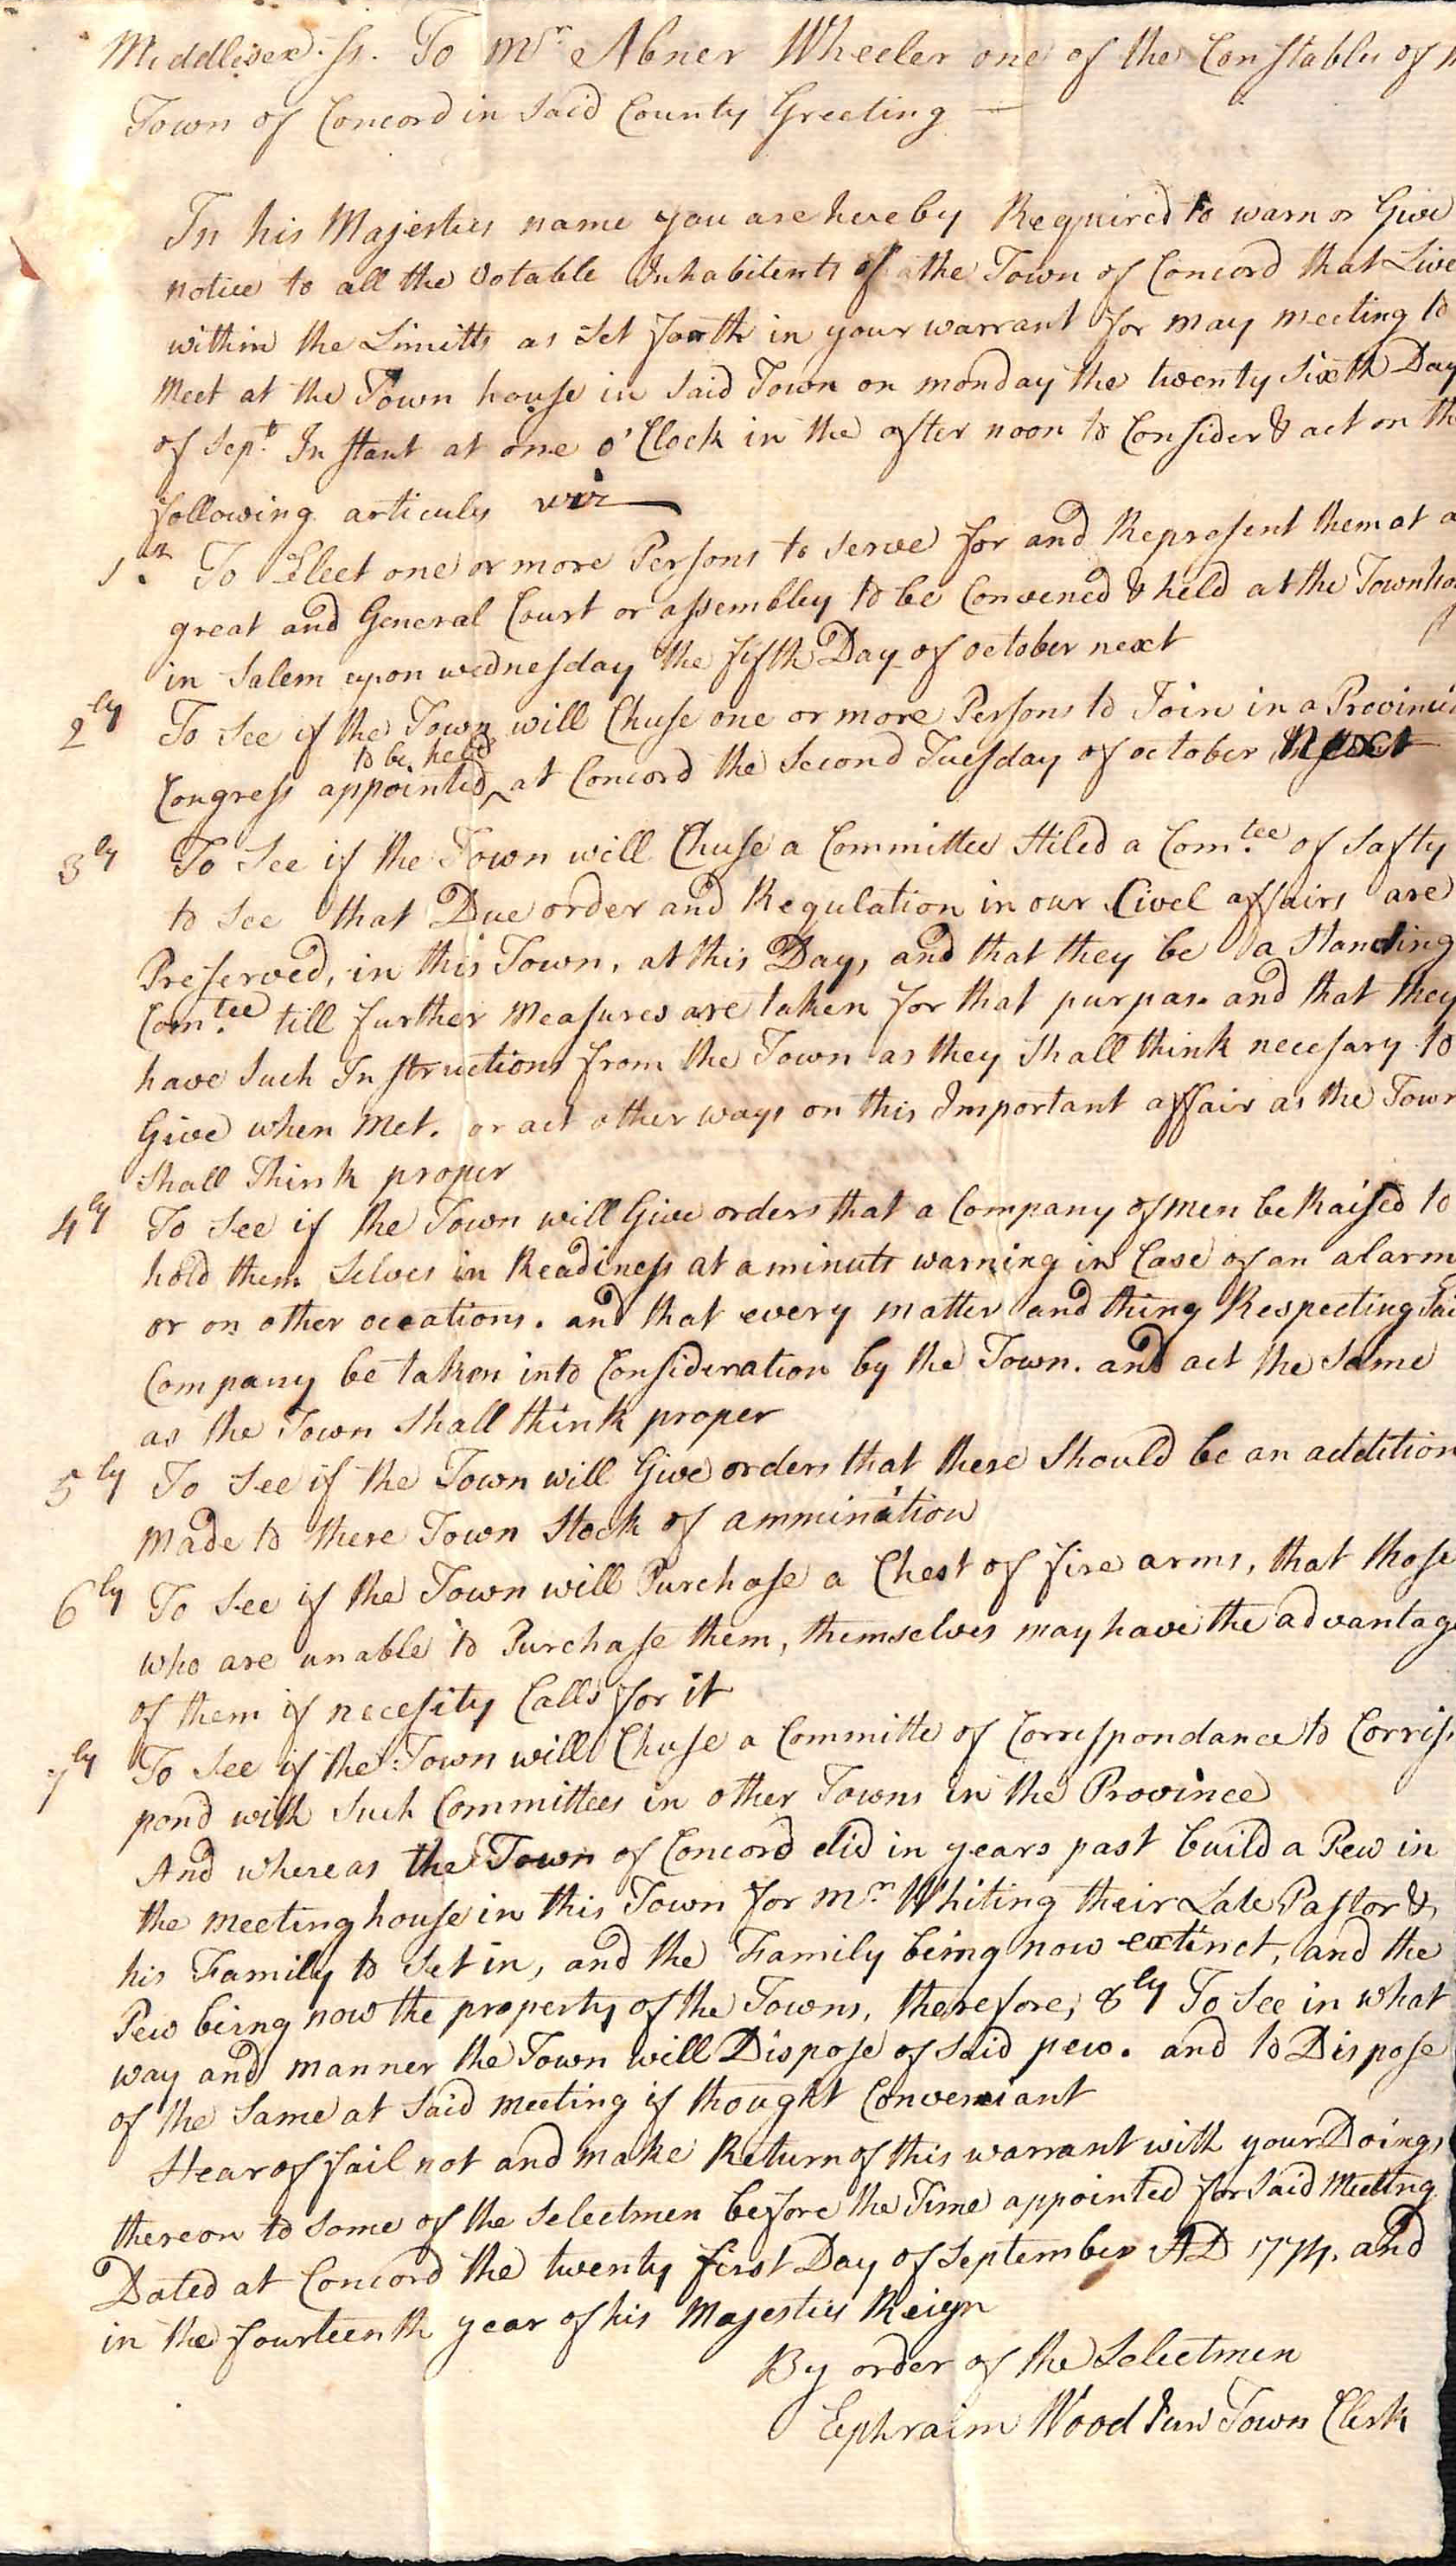 Middlesex. ss. To Mr. Abner Wheeler one of the Constables of
Town of Concord in Said County Greeting —
In his Majesties name you are hereby Required to warn or Give
notice to all the Votable Inhabitents of the Town of Concord that Live
within the Limitts as Set forth in your warrant for may meeting to
Meet at the Town house in Said Town on monday the twenty Sixth Day
of Sept. Instant at one o'Clock in the after noon to Consider & act on th
following articules viz
1st. To Elect one or more Persons to Serve for and Represent them at a
great and General Court or assembley to be Convened & held at the Townho
in Salem upon wednesday the fifth Day of october next
2ly To See if the Town will Chuse one or more Persons to Join in a Provinci
to be held
Congress appointed ‸ at Concord the Second Tuesday of october Next
3ly To See if the Town will Chuse a Committee Stiled a Com.tee of Safty
to See that Due order and Regulation in our Civel affairs are
Preserved, in this Town, at this Day, and that they be a Standing
Com.tee till further Measures are taken for that purpas. and that they
have Such Instructions from the Town as they Shall think necesary to
Give when Met. or act other ways on this Important affair as the Town
Shall Think proper
4ly To See if the Town will Give orders that a Company of Men be Raised to
hold them Selves in Readiness at a minuts warning in Case of an alarm
or on other ocations. and that every matter and thing Respecting Sai
Company be taken into Consideration by the Town. and act the Same
as the Town Shall think proper
5ly To See if the Town will Give orders that there Should be an addition
Made to there Town Stock of ammination
6ly To See if the Town will Purchase a Chest of fire arms, that those
who are unable to Purchase them, themselves may have the advantage
of them if necesity Calls for it
7ly To See if the Town will Chuse a Committe of Correspondance to Corris
pond with Such Committees in other Towns in the Province
And whereas the Town of Concord did in years past build a Pew in
the meeting house in this Town for Mr. Whiting their Late Pastor &
his Family to Set in, and the Family being now extinct, and the
Pew being now the property of the Towns, therefore, 8ly To See in what
way and manner the Town will Dispose of Said pew. and to Dispose
of the Same at Said meeting if thought Conveniant
Hear of fail not and make Return of this warrant with your Doings
thereon to Some of the Selectmen before the Time appointed for Said Meeting
Dated at Concord the twenty first Day of September AD 1774. and
in the fourteenth year of his Majesties Reign
By order of the Selectmen
Ephraim Wood Jun Town Clerk